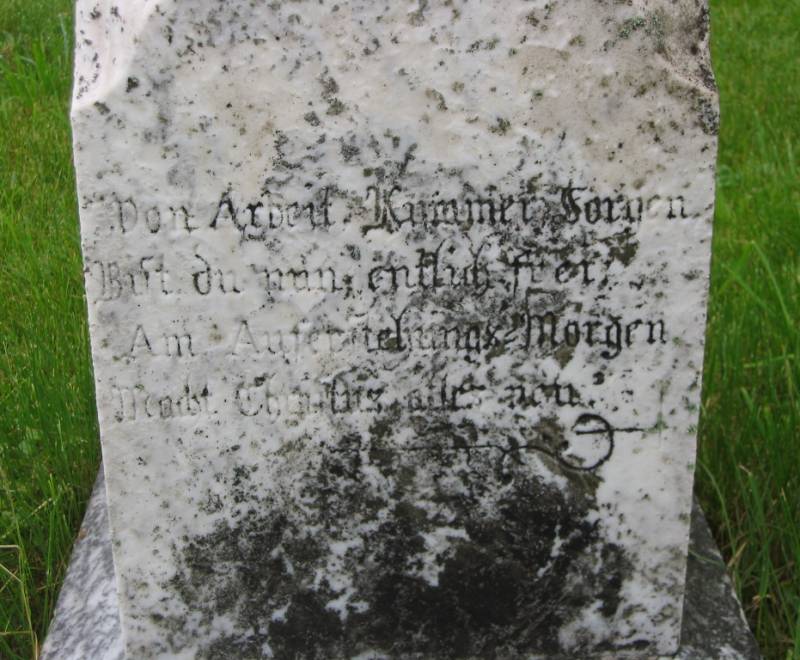 Von Arbeit, Kummer, Sorgen
Bist du nun, entlich frei,
Am Auferstehungs-Morgen
Macht Christus alles neu.